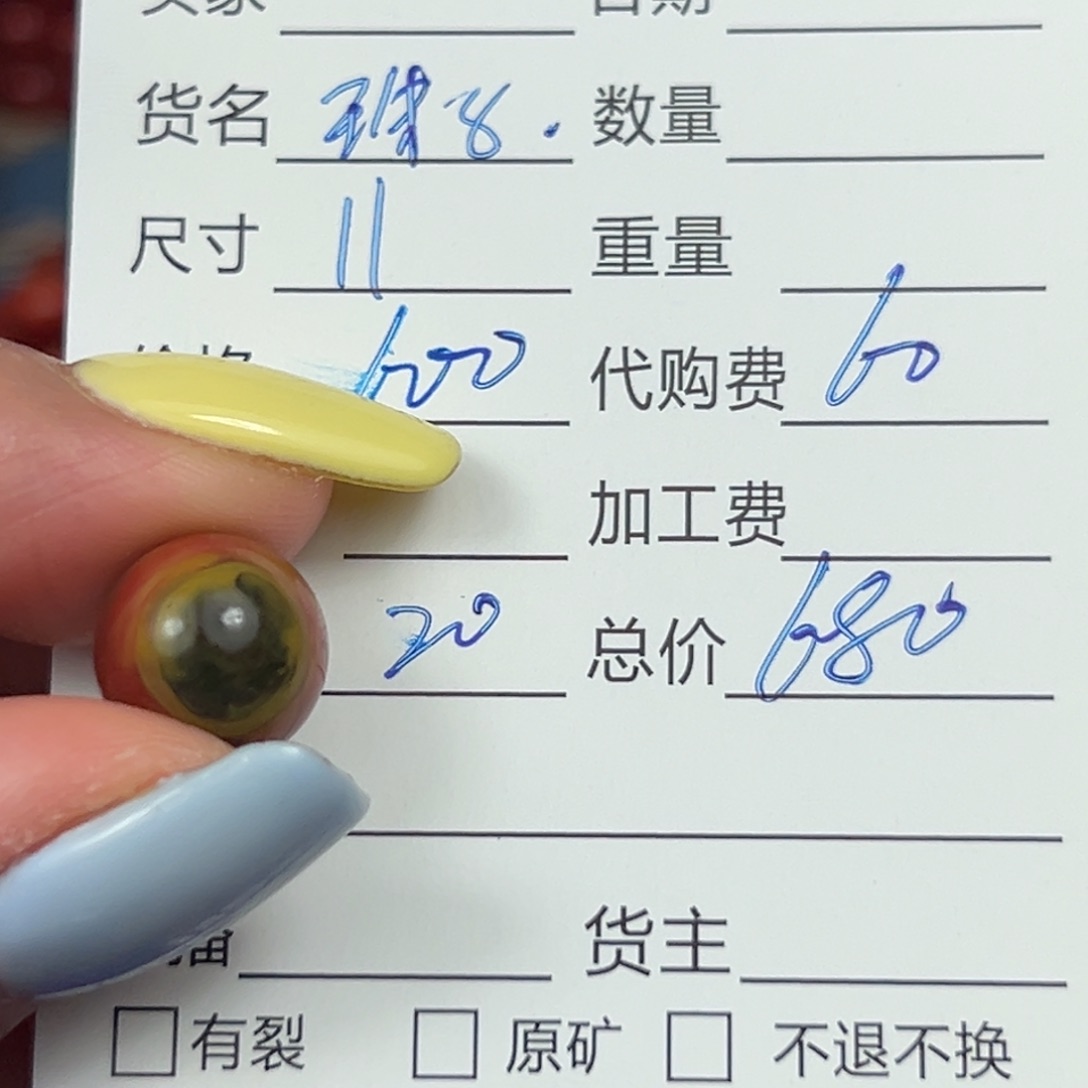 货名 珠子. 数量
尺寸 11 重量
600 代购费 60
加工费
20 总价 680
货主
有裂 原矿 不退不换